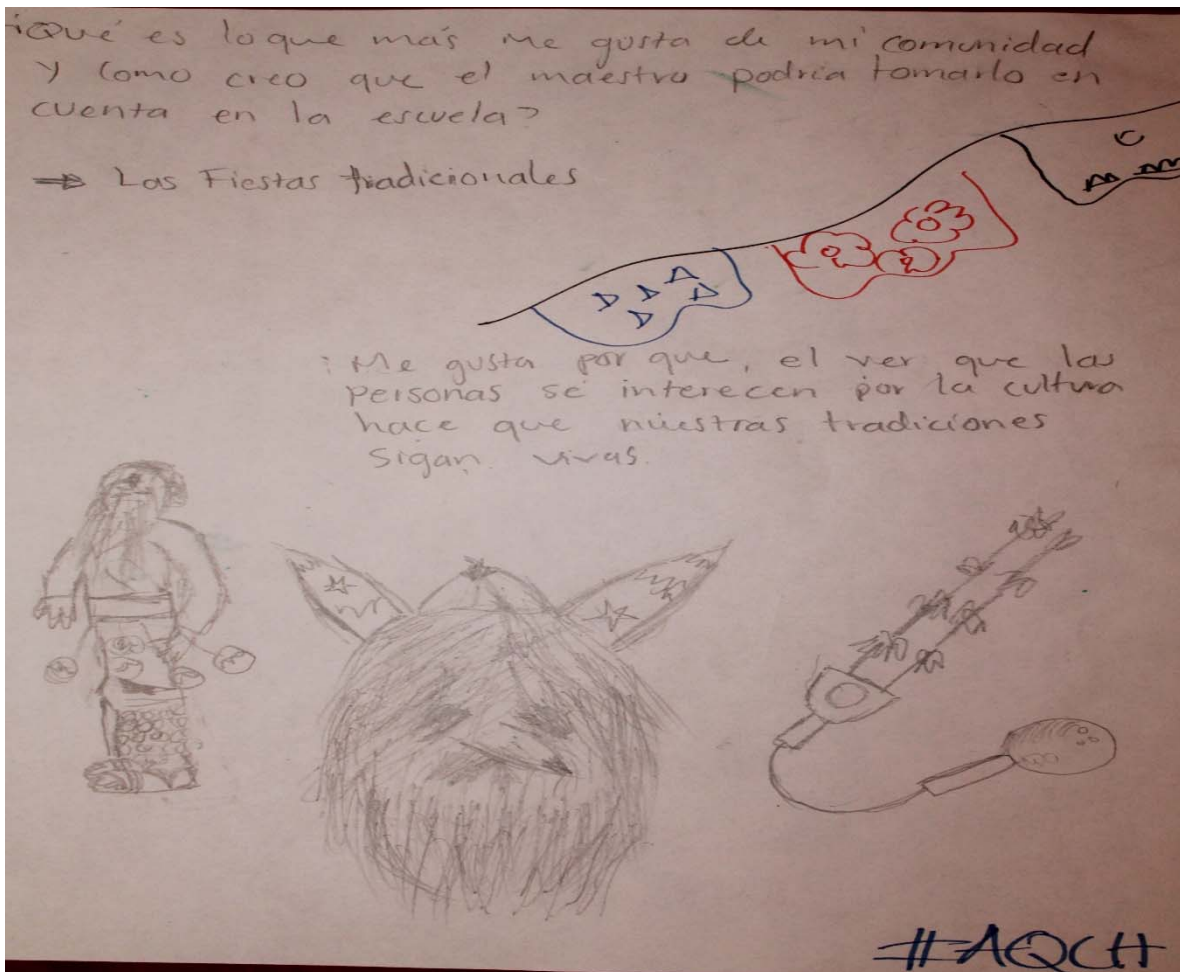 ¿Qué es lo que más me gusta de mi comunidad
y como creo que el maestro podría tomarlo en
cuenta en la escuela?
⇒ Las Fiestas tradicionales
¡Me gusta por que, el ver que las
personas se interecen por la cultura
hace que nuestras tradiciones
sigan vivas.
#AQCH